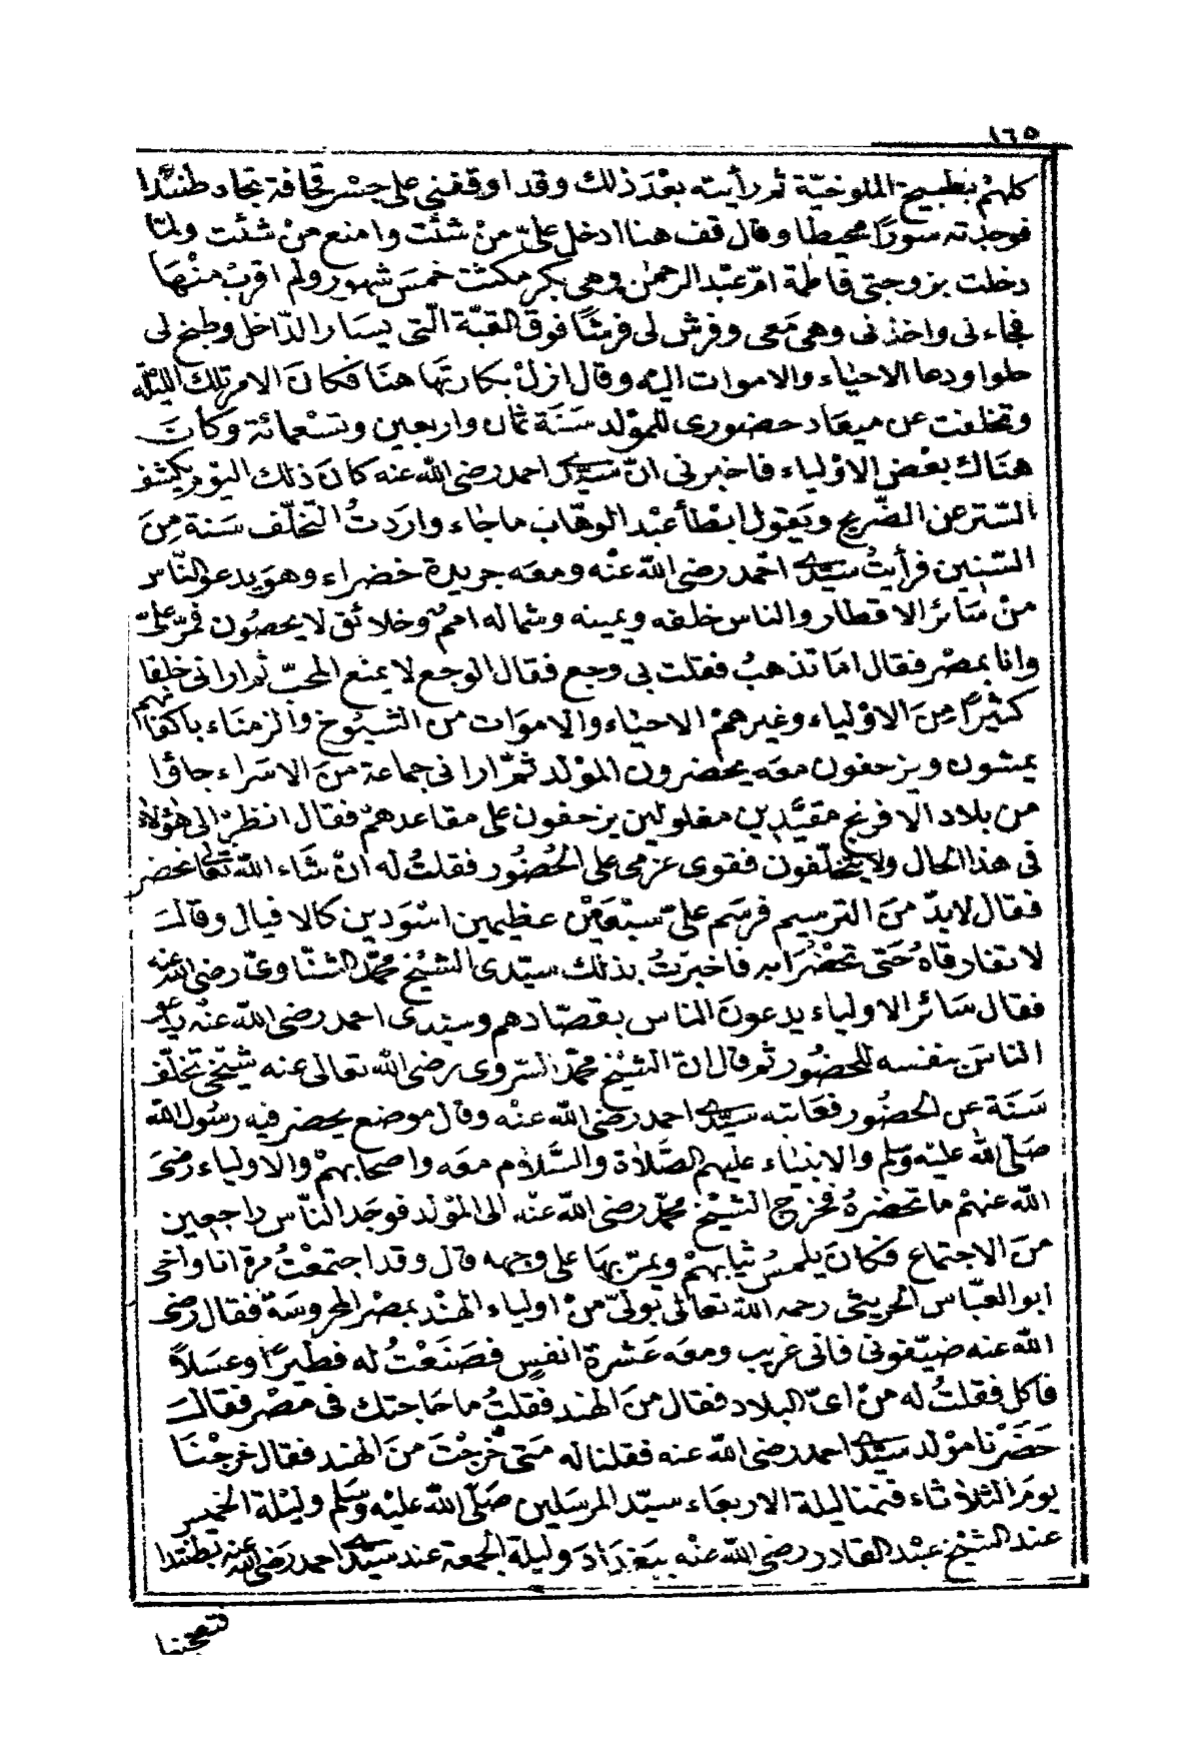 ١٦٥
كلهم بطبيخ الملوخية ثم رأيته بعد ذلك وقد اوقفنى على جسر قحافة تجاه طندتا
فوجدته سورا محيطا وقال قف هنا ادخل على من شئت وامنع من شئت ولما
دخلت بزوجتى فاطمة ام عبد الرحمن وهى بكر مكثت خمس شهور ولم اقرب منها
فجاءنى واخذنى وهى معى وفرش لى فرشا فوق القبة التى يسار الداخل وطبخ لى
حلوا ودعا الاحياء والاموات اليه وقال ازل بكارتها هنا فكان الامر تلك الليلة
وتخلفت عن ميعاد حضورى للمولد سنة ثمان واربعين وتسعمائة وكان
هناك بعض الاولياء فاخبرنى ان سيدى احمد رضى الله عنه كان ذلك اليوم يكشف
الستر عن الضريح ويقول ابطأ عبد الوهاب ما جاء واردت التخلف سنة من
السنين فرأيت سيدى احمد رضى الله عنه ومعه جريدة خضراء وهو يدعو الناس
من سائر الاقطار والناس خلفه ويمينه وشماله امم وخلائق لا يحصون فمر على
وانا بمصر فقال اما تذهب فقلت بى وجع فقال الوجع لا يمنع المحب ثم ارانى خلقا
كثيرا من الاولياء وغيرهم الاحياء والاموات من الشيوخ والزمناء باكفانهم
يمشون ويزحفون معه يحضرون المولد ثم ارانى جماعة من الاسراء جاؤا
من بلاد الافرنج مقيدين مغلولين يزحفون على مقاعدهم فقال انظر الى هؤلاء
فى هذا الحال ولا يتخلفون فقوى عزمى على الحضور فقلت له ان شاء الله تعالى نحضر
فقال لابد من الترسيم فرسم على سبعين عظيمين اسودين كالافيال وقال
لا تفارقاه حتى تحضرا به فاخبرت بذلك سيدى الشيخ محمد الشناوى رضى الله عنه
فقال سائر الاولياء يدعون الناس بقصادهم وسيدى احمد رضى الله عنه يدعو
الناس بنفسه للحضور ثم قال ان الشيخ محمد السروى رضى الله تعالى عنه شيخى تخلف
سنة عن الحضور فعاتبه سيدى احمد رضى الله عنه وقال موضع يحضر فيه رسول الله
صلى الله عليه وسلم والانبياء عليهم الصلاة والسلام معه واصحابهم والاولياء رضى
الله عنهم ما تحضره فخرج الشيخ محمد رضى الله عنه الى المولد فوجد الناس راجعين
من الاجتماع فكان يلمس ثيابهم ويمر بها على وجهه قال وقد اجتمعت مرة انا واخى
ابو العباس الحريثى رحمه الله تعالى بولى من اولياء الهند بمصر المحروسة فقال رضى
الله عنه ضيفونى فانى غريب ومعه عشرة انفس فصنعت له فطيرا وعسلا
فاكل فقلت له من اى البلاد فقال من الهند فقلت ما حاجتك فى مصر فقال
حضرنا مولد سيدى احمد رضى الله عنه فقلنا له متى خرجت من الهند فقال خرجنا
يوم الثلاثاء فنمنا ليلة الاربعاء سيد المرسلين صلى الله عليه وسلم وليلة الخميس
عند الشيخ عبد القادر رضى الله عنه ببغداد وليلة الجمعة عند سيدى احمد رضى الله عنه بطندتا
فتعجبنا